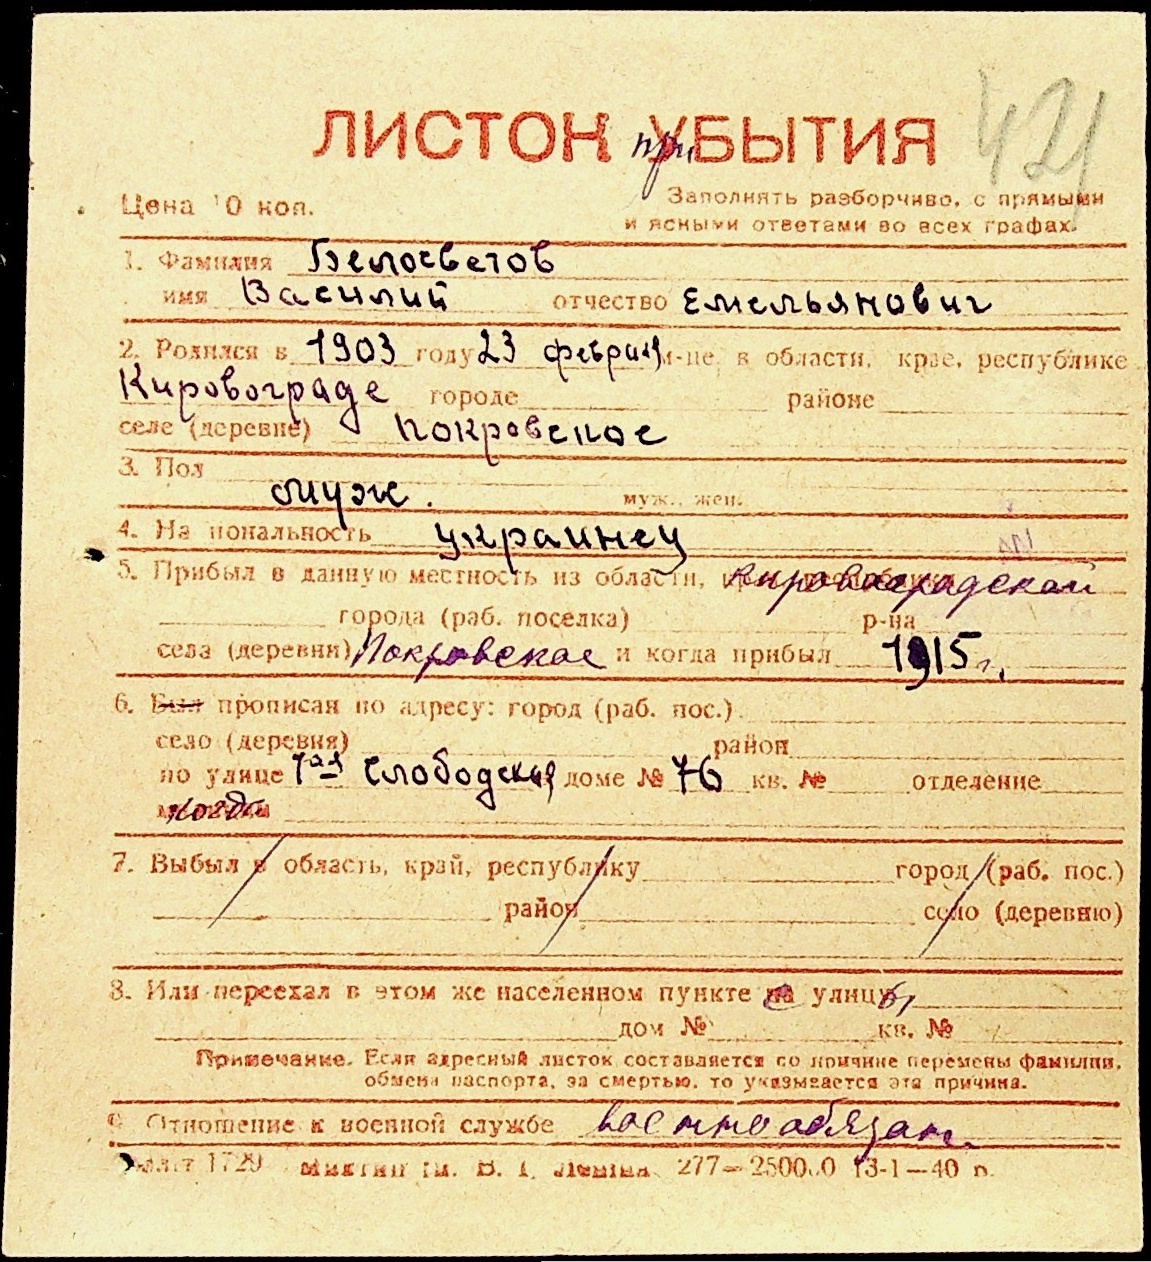 421
ЛИСТОК при УБЫТИЯ
Цена 10 коп.
Заполнять разборчиво, с прямыми
и ясными ответами во всех графах.
1. Фамилия Белосветов
имя Василий отчество Емельянович
2. Родился в 1903 году 23 февраля м-це, в области, крае, республике
Кировограде городе районе
селе (деревне) Покровское
3. Пол муж. муж., жен.
4. Национальность украинец
5. Прибыл в данную местность из области, Кировоградской
города (раб. поселка) р-на
села (деревни) Покровское и когда прибыл 1915 г.
6. Был прописан по адресу: город (раб. пос.)
село (деревня) район
по улице 1ая Слободская доме № 76 кв. № отделение
милиции когда
7. Выбыл в область, край, республику город (раб. пос.)
район село (деревню)
8. Или переехал в этом же населенном пункте на с улицу ы
дом № кв. №
Примечание. Если адресный листок составляется по причине перемены фамилии,
обмена паспорта, за смертью, то указывается эта причина.
9. Отношение к военной службе военнообязан.
1729 им. В. И. Ленина 277—250000 13-1—40 г.